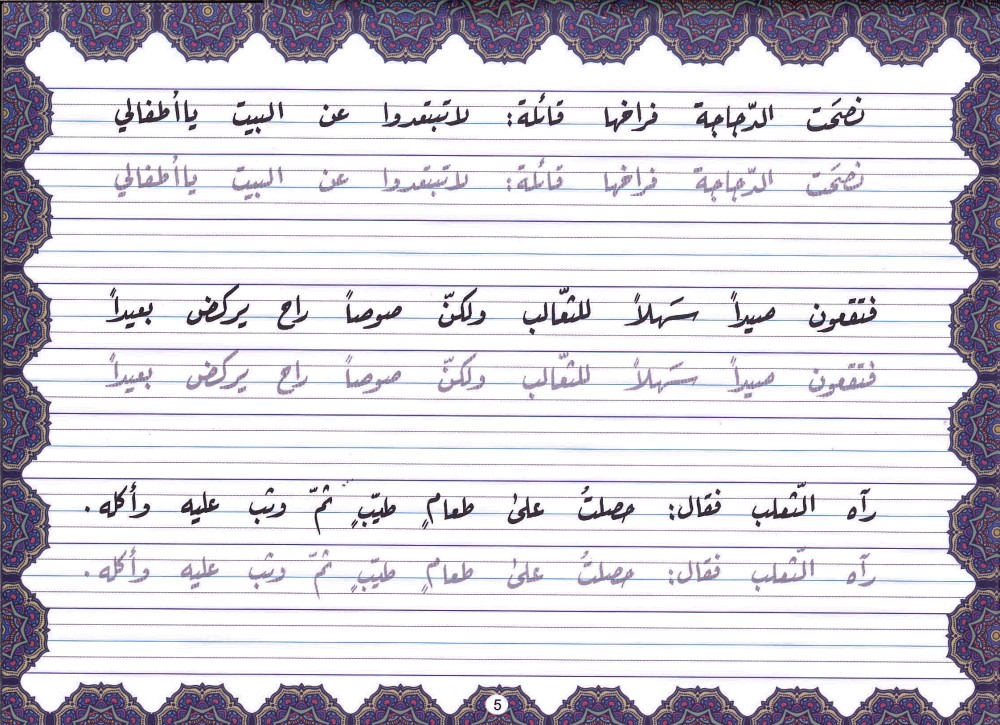 نصَحَت الدّجاجة فراخها قائلة: لاتبتعدوا عن البيت ياأطفالي
نصَحَت الدّجاجة فراخها قائلة: لاتبتعدوا عن البيت ياأطفالي
فتقعون صيداً سَهلاً للثعّالب ولكنّ صوصاً راح يركض بعيداً
فتقعون صيداً سَهلاً للثعّالب ولكنّ صوصاً راح يركض بعيداً
رآه الثّعلب فقال: حصلتُ علىٰ طعامٍ طيّبٍ ثمّ وثب عليه وأكله.
رآه الثّعلب فقال: حصلتُ علىٰ طعامٍ طيّبٍ ثمّ وثب عليه وأكله.
5